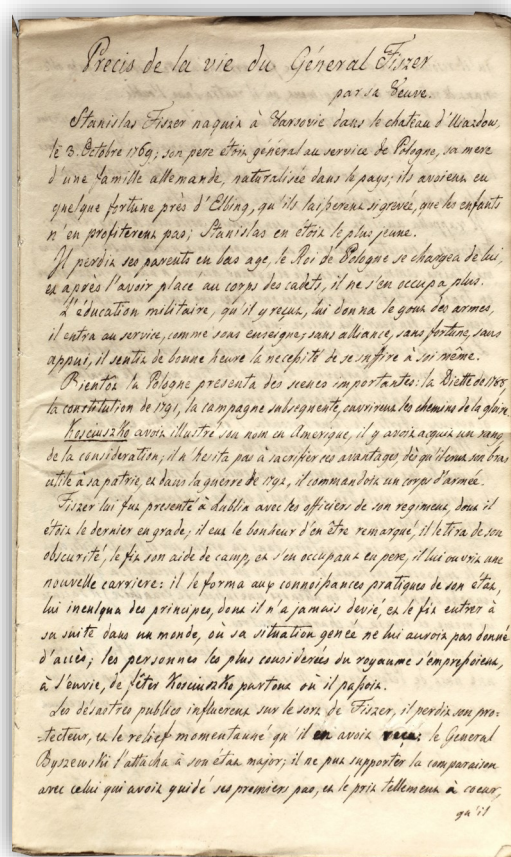 Précis de la vie du Général Fiszer
par sa Veuve.
Stanislas Fiszer naquit à Varsovie dans le chateau d'Uiazdow,
le 3. Octobre 1769; son pere étoit général au service de Pologne, sa mere
d'une famille allemande, naturalisée dans le pays; ils avoient eu
quelque fortune près d'Elbing, qu'ils laisserent si grevée, que les enfants
n'en profiterent pas; Stanislas en étoit le plus jeune.
Il perdit ses parents en bas age, le Roi de Pologne se chargea de lui,
et après l'avoir placé au corps des cadets, il ne s'en occupa plus.
L'éducation militaire, qu'il y reçut, lui donna le gout des armes,
il entra au service, comme sous enseigne; sans alliance, sans fortune, sans
appui, il sentit de bonne heure la necessité de se suffire à soi même.
Bientot la Pologne presenta des scenes importantes: la Diette de 1788,
la constitution de 1791, la campagne subsequente, ouvrirent les chemins de la gloire.
Kosciuszko avoit illustré son nom en Amerique, il y avoit acquit un rang,
de la consideration; il n'hesita pas à sacrifier ces avantages, dès qu'il crut son bras
utile à sa patrie, et dans la guerre de 1792, il commandoit un corps d'armée.
Fiszer lui fut presenté à Lublin avec les officiers de son regiment, dont il
étoit le dernier en grade; il eut le bonheur d'en être remarqué, il le tira de son
obscurité, le fit son aide de camp, et s'en occupant en pere, il lui ouvrit une
nouvelle carriere: il le forma aux connoissances pratiques de son état,
lui inculqua des principes, dont il n'a jamais devié, et le fit entrer à
sa suite dans un monde, ou sa situation genée ne lui auroit pas donné
d'accès; les personnes les plus considerées du royaume s'empressoient,
à l'envie, de fêter Kosciuszko partout où il passoit.
Les désastres publics influerent sur le sort de Fiszer, il perdit son pro-
-tecteur, et le relief momentanné qu'il en avoit recu: le General
Byszewski l'attacha à son état major; il ne put supporter la comparaison
avec celui qui avoit guidé ses premiers pas, et le prit tellement à coeur,
qu'il